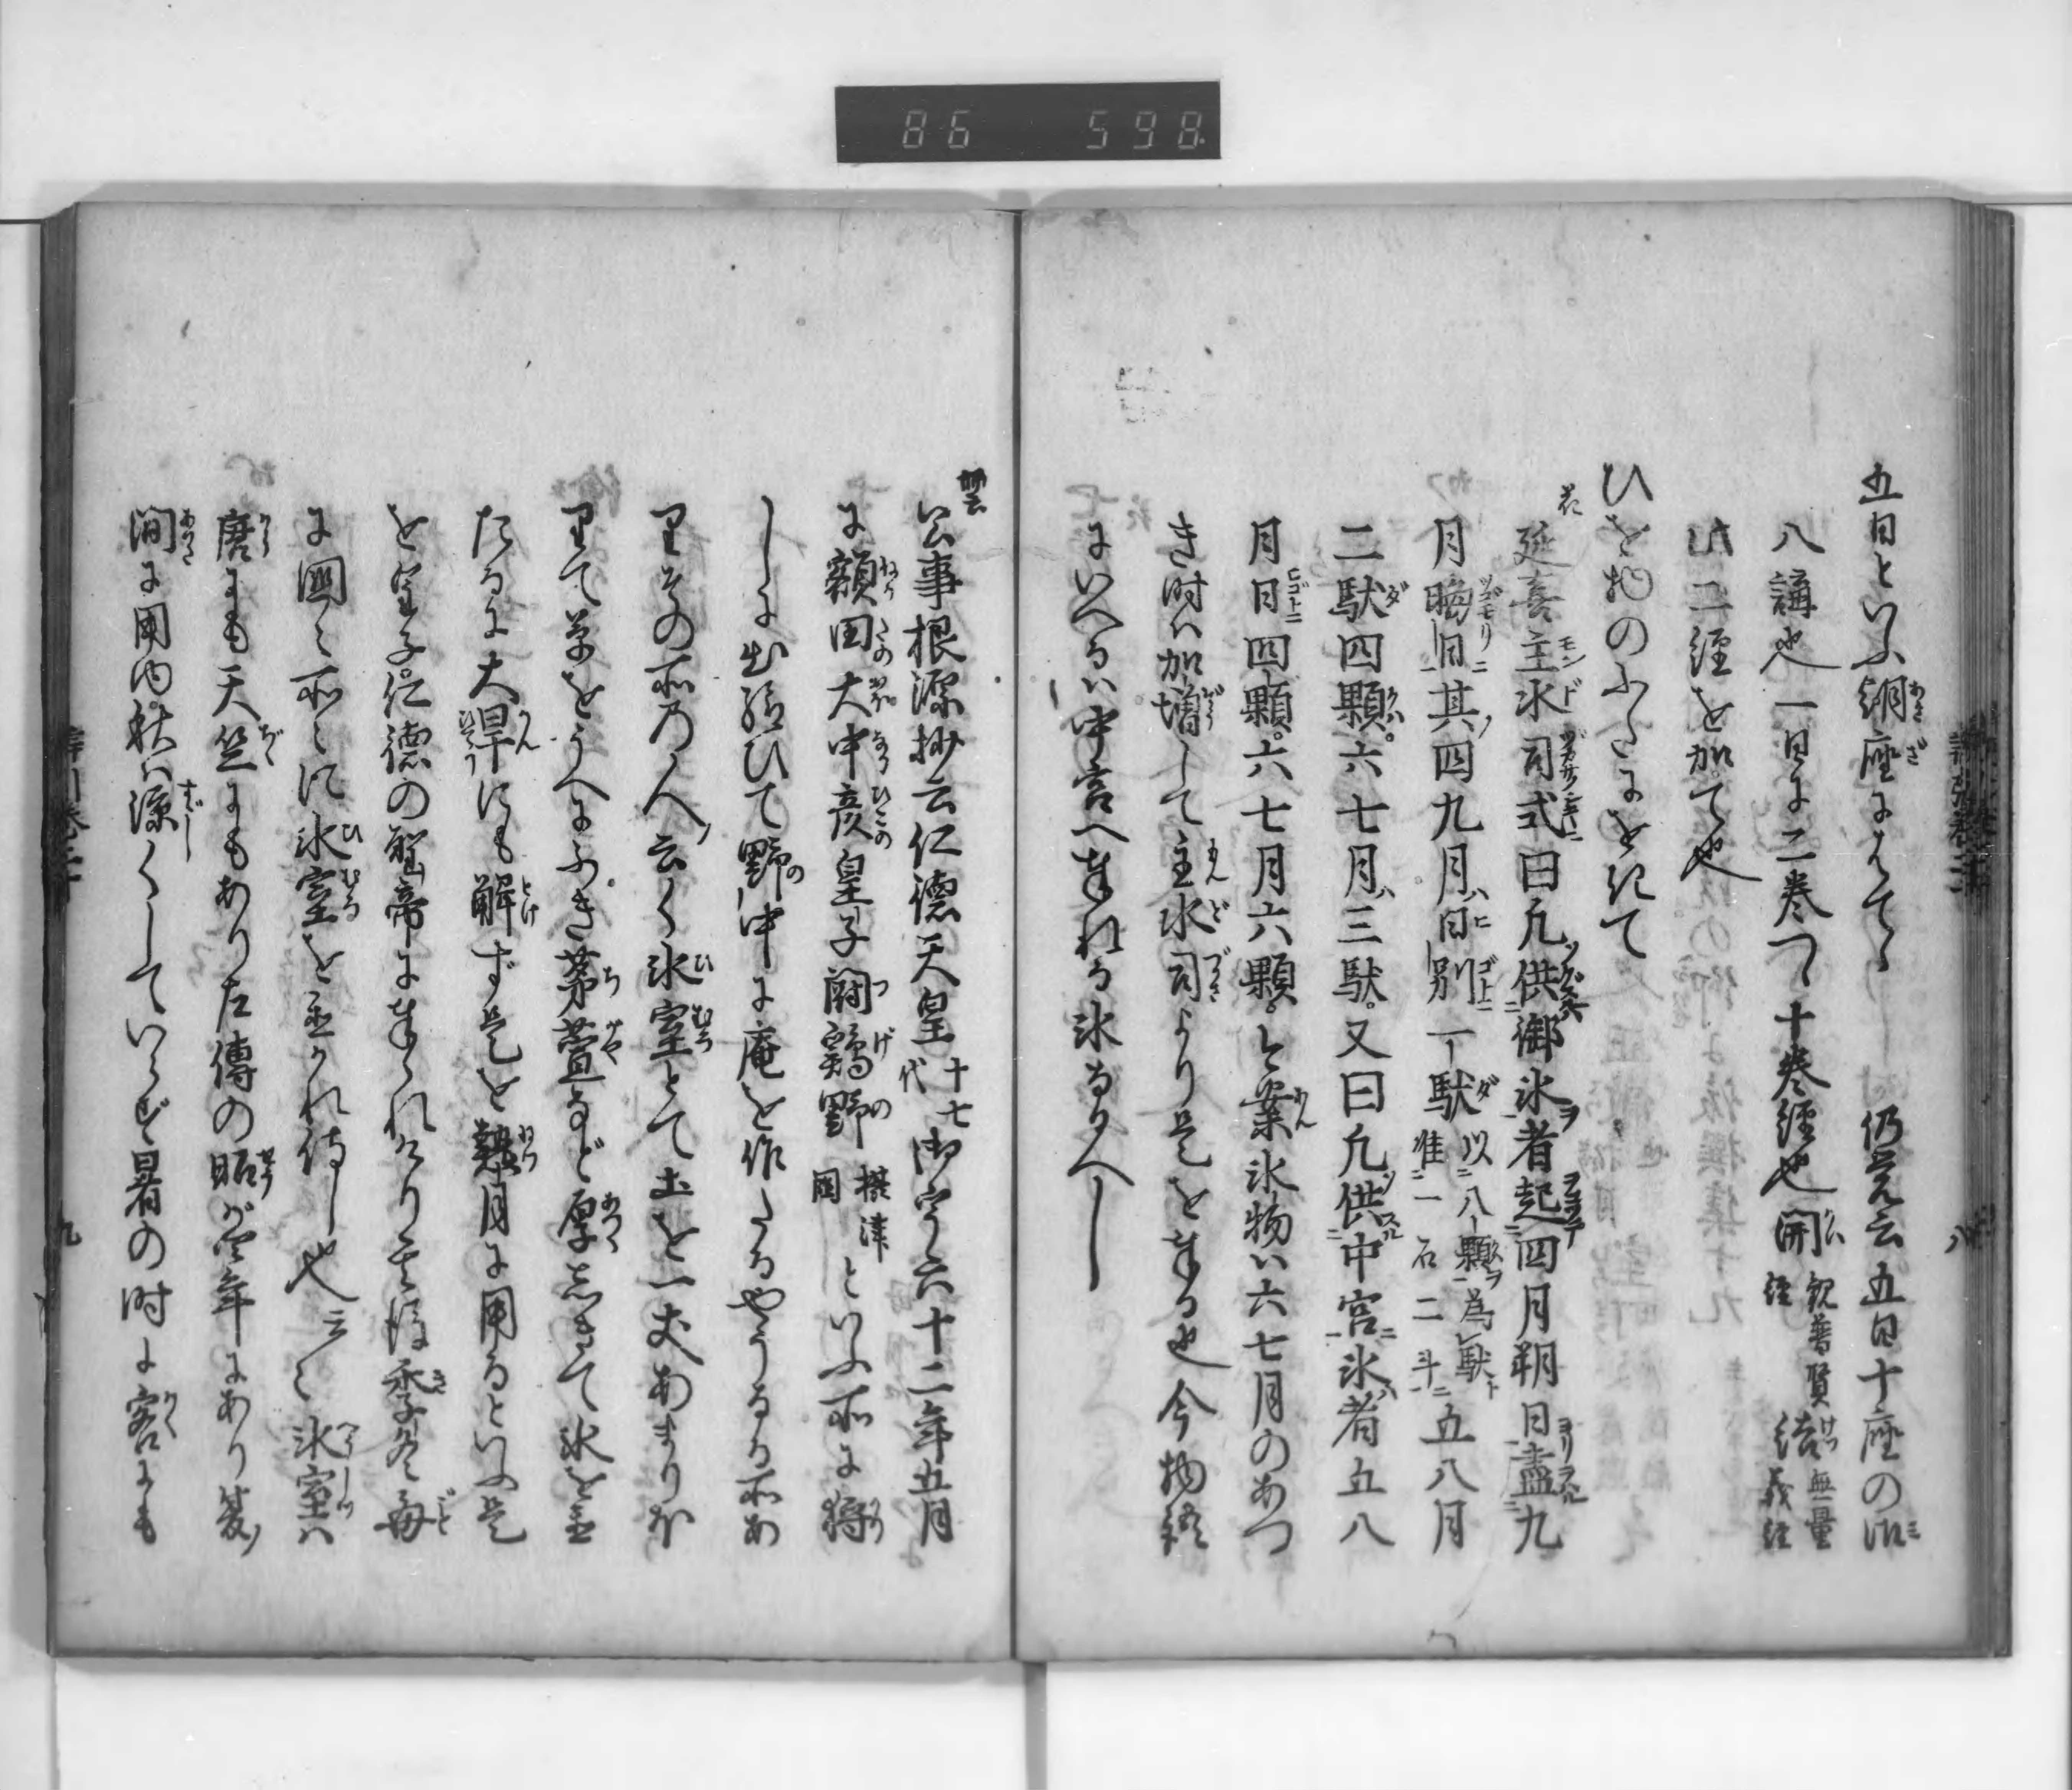 86 598
五日といふ朝座にはてゝ
仍覚云五日十座の御
八講也一日に二巻つゝ十巻経也開観普賢経結無量義経
此二経を加て也
ひを物のふたにをきて
花
延喜主水司式曰凡供御氷者起四月朔日尽九
月晦日其四九月日別一駄以八顆為駄准一石二斗五八月
二駄四顆六七月三駄又曰凡供中宮氷者五八
月日四顆六七月六顆と案氷物ハ六七月のあつ
き時ハ加増して主水司より是を奉る也今物語
にいへるハ中宮へ奉れる氷なるへし
公事根源抄云仁徳天皇十七代御宇六十二年五月
に額田大中彦皇子闘鶏野摂津国といふ所に狩
しに出給ひて野中に庵を作たるやうなる所あ
りその所の人云く氷室とて土を一丈あまりほ
りて草をうへにふき茅萱など厚しきて氷を置
たるに大旱にも解ず是を熱月に用るといふ是
を皇子仁徳の聖帝に奉られけり其後季冬毎
に国々所々に氷室を置かれ侍し也云々氷室ハ
唐にも天竺にもありた傳の昭が四年にあり
間に用内秋ハ涼くしていらず暑の時に客にも
八
九